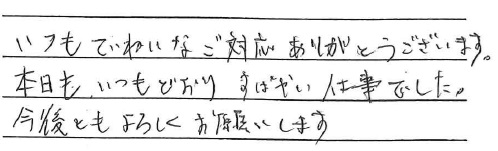 いつもていねいなご対応ありがとうございます。
本日も、いつもどおり すばやい仕事でした。
今後ともよろしくお願いします